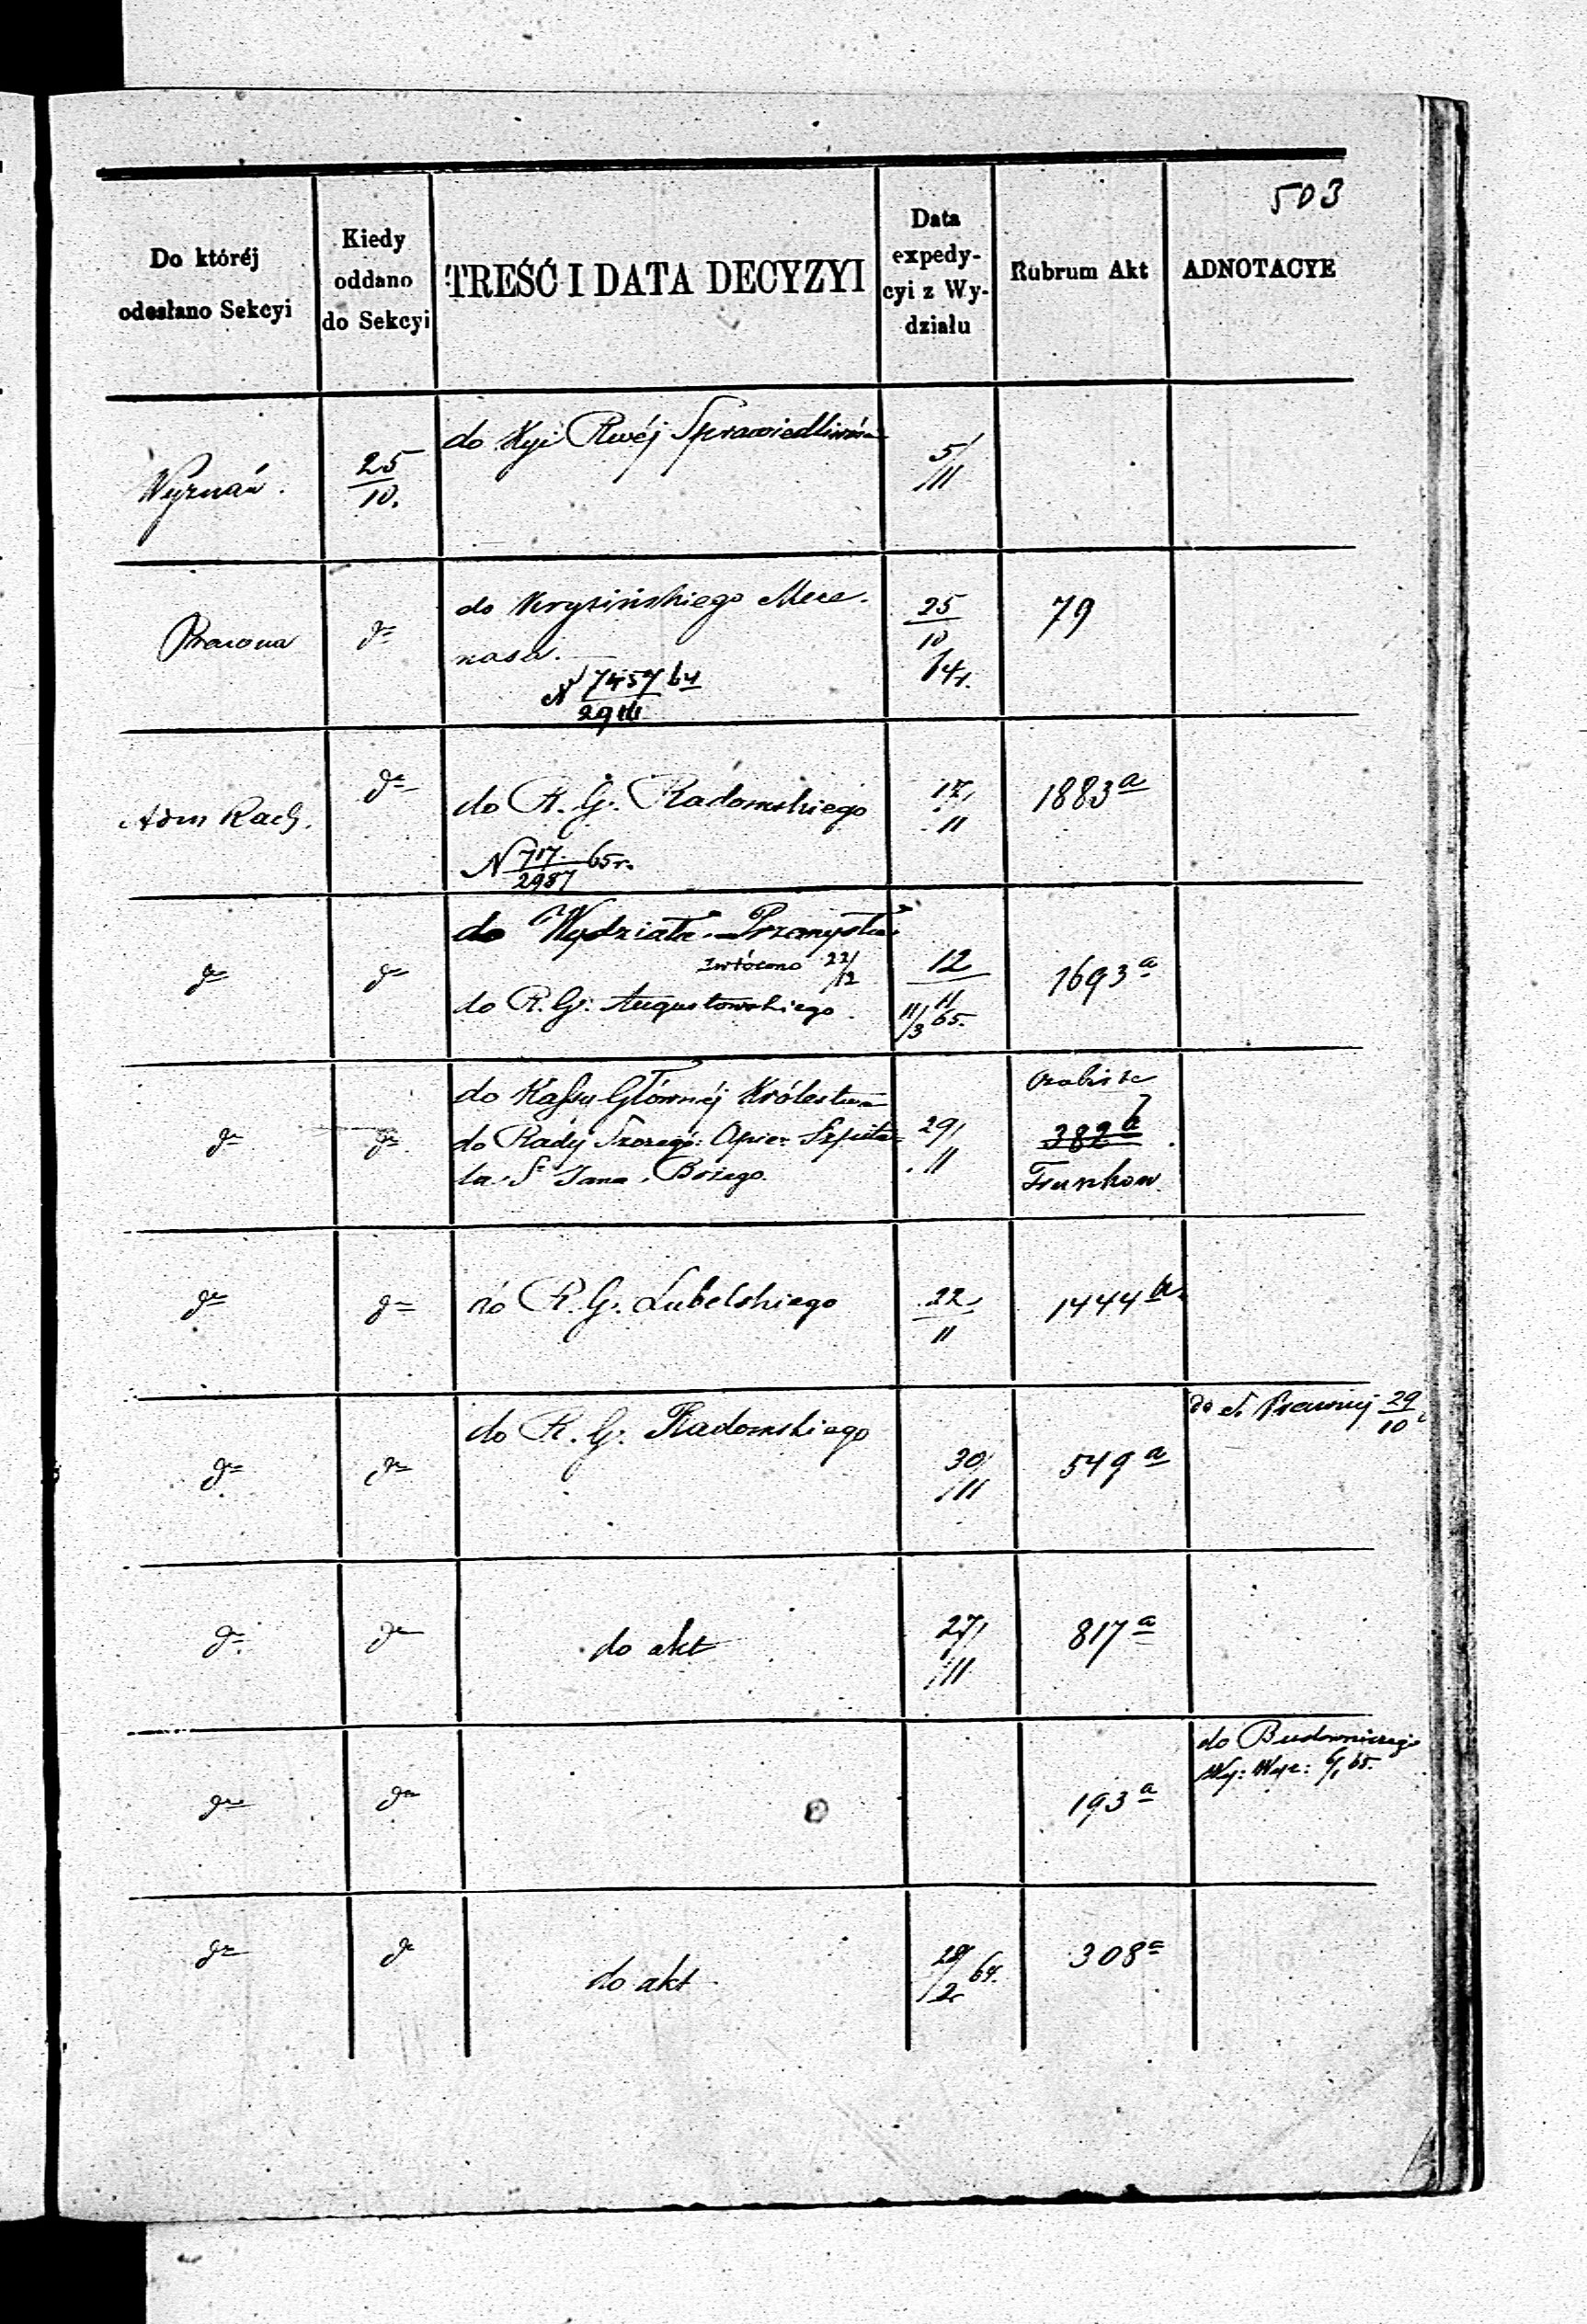 503
Do któréj odesłano Sekcyi
Kiedy oddano do Sekcyi
TREŚĆ I DATA DECYZYI
Data expedy-cyi z Wy-działu
Rubrum Akt
ADNOTACYE
Wyznań.
25/10.
do Kyi Rwéj Sprawiedliwości
5/11
Prawna
do
do Krysińskiego Mece-
nasa.
N 7457/29 64
25/10 64r.
79
Adm Rach.
do
do R. G. Radomskiego
N 717/2987 65r.
17/11
1883a
do
do
do Wydziału Przemysłu
Zwrócono 22/12
do R. G. Augustowskiego.
12/11
11/3 65.
1693a
do
do
do Kassy Głównéj Królestwa
do Rady Szczegó: Opie: Szpita-
la Sgo Jana Bożego.
29/11
382b
do
do
do R. G. Lubelskiego
22/11
1444a
do
do
do R. G. Radomskiego
30/11
549a
do S. Prawnéj 29/10
do
do
do akt
27/11
817a
do
do
193a
do Budowniczego
6/1 65.
do
do
do akt
28/2 64.
308a